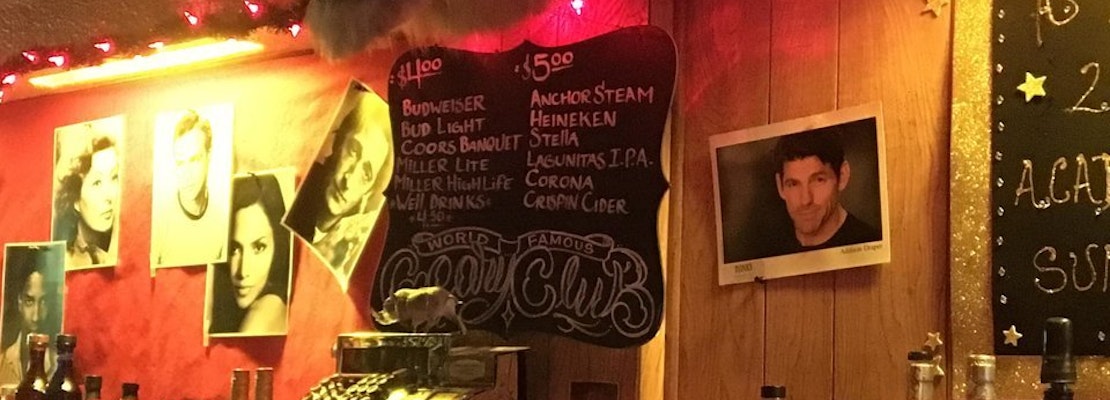 $4.00
BUDWEISER
BUD LIGHT
COORS BANQUET
MILLER LITE
MILLER HIGH LIFE
WELL DRINKS
4.50
$5.00
ANCHOR STEAM
HEINEKEN
STELLA
LAGUNITAS I.P.A.
CORONA
CRISPIN CIDER
WORLD FAMOUS
Geary Club
2
ACA
SU